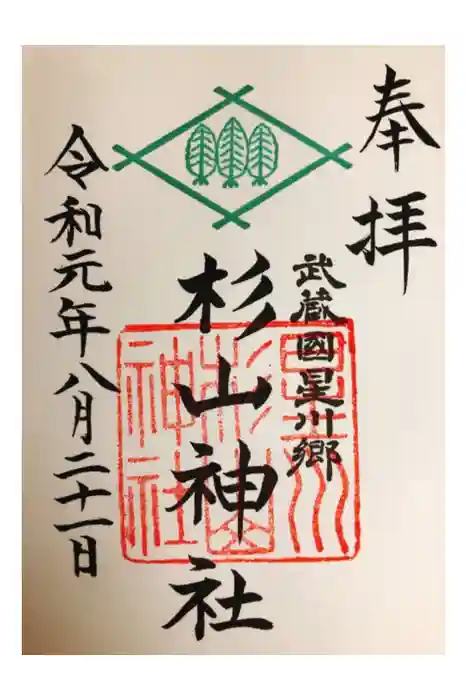 奉拝
武蔵國星川郷
杉山神社
星川
杉山
神社
令和元年八月二十一日